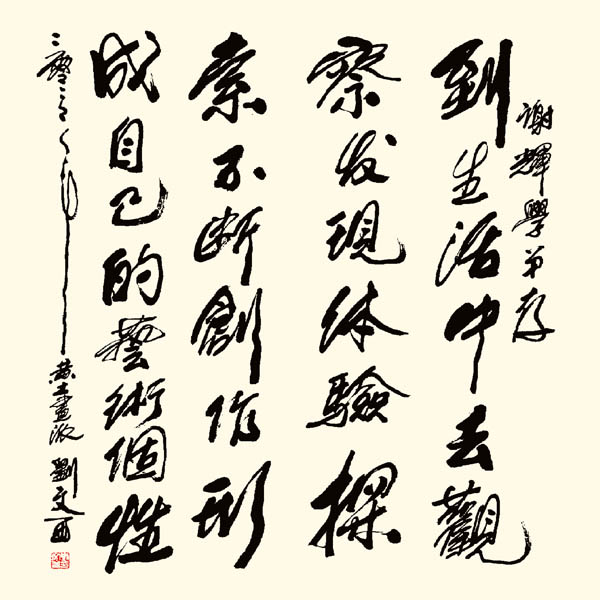 謝輝學弟存
到生活中去觀
察发現体驗探
索不断創作形
成自己的藝術個性
二零 年 黄土畫派 劉文西